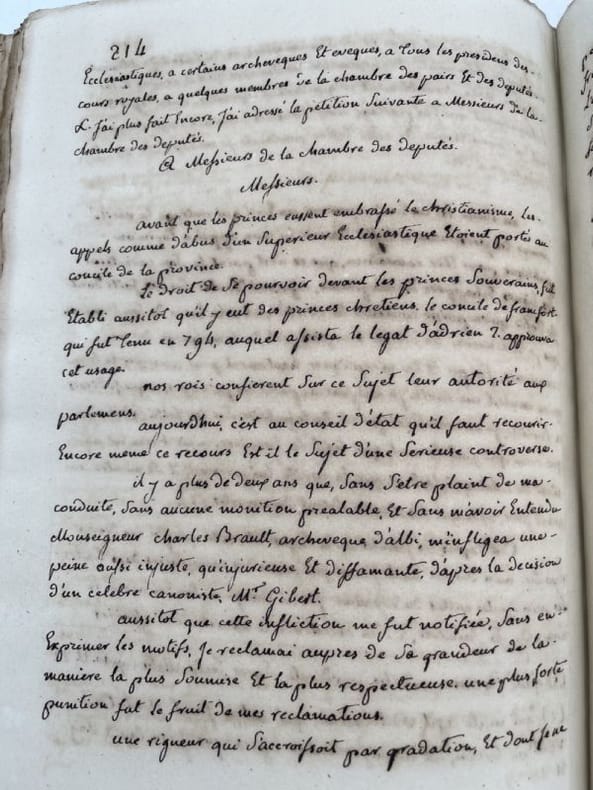 214
Ecclésiastiques, a certains archeveques Et eveques, a Tous les presidens des
cours royales, a quelques membres de la chambre des pairs Et des deputés.
J'ai plus fait Encore, J'ai adressé la petition Suivante a Messieurs de la
chambre des deputés.
A Messieurs de la chambre des deputés.
Messieurs.
avant que les princes eussent embrassé le christianisme, les
appels comme d'abus d'un Superieur Ecclésiastique Etoient portés au
concile de la province.
Le droit de Se pourvoir devant les princes Souverains, fut
Etabli aussitot qu'il y eut des princes chretiens. le concile de francfort
qui fut Tenu en 794, auquel assista le legat d'adrien 1. approuva
cet usage.
nos rois confierent Sur ce Sujet leur autorité aux
parlemens.
aujourd'hui, c'est au conseil d'état qu'il faut recourir.
Encore meme ce recours Est il le Sujet d'une Serieuse controverse.
il y a plus de deux ans que, Sans S'etre plaint de ma
conduite, Sans aucune monition prealable, Et Sans m'avoir Entendu
Monseigneur charles Brault, archeveque d'albi, m'infligea une
peine aussi injuste, qu'injurieuse Et diffamante, d'apres la decision
d'un celebre canoniste, Mr. Gibert.
aussitot que cette infliction me fut notifiée, Sans en
Exprimer les motifs, Je reclamai aupres de Sa grandeur de la
maniere la plus Soumise Et la plus respectueuse. une plus forte
punition fut le fruit de mes reclamations.
une rigueur qui S'accroissoit par gradation, Et dont je ne